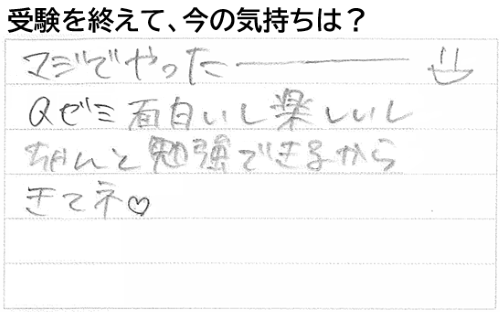 受験を終えて、今の気持ちは？
マジでやったー
Qゼミ面白いし楽しいし
ちゃんと勉強できるから
きてネ♡